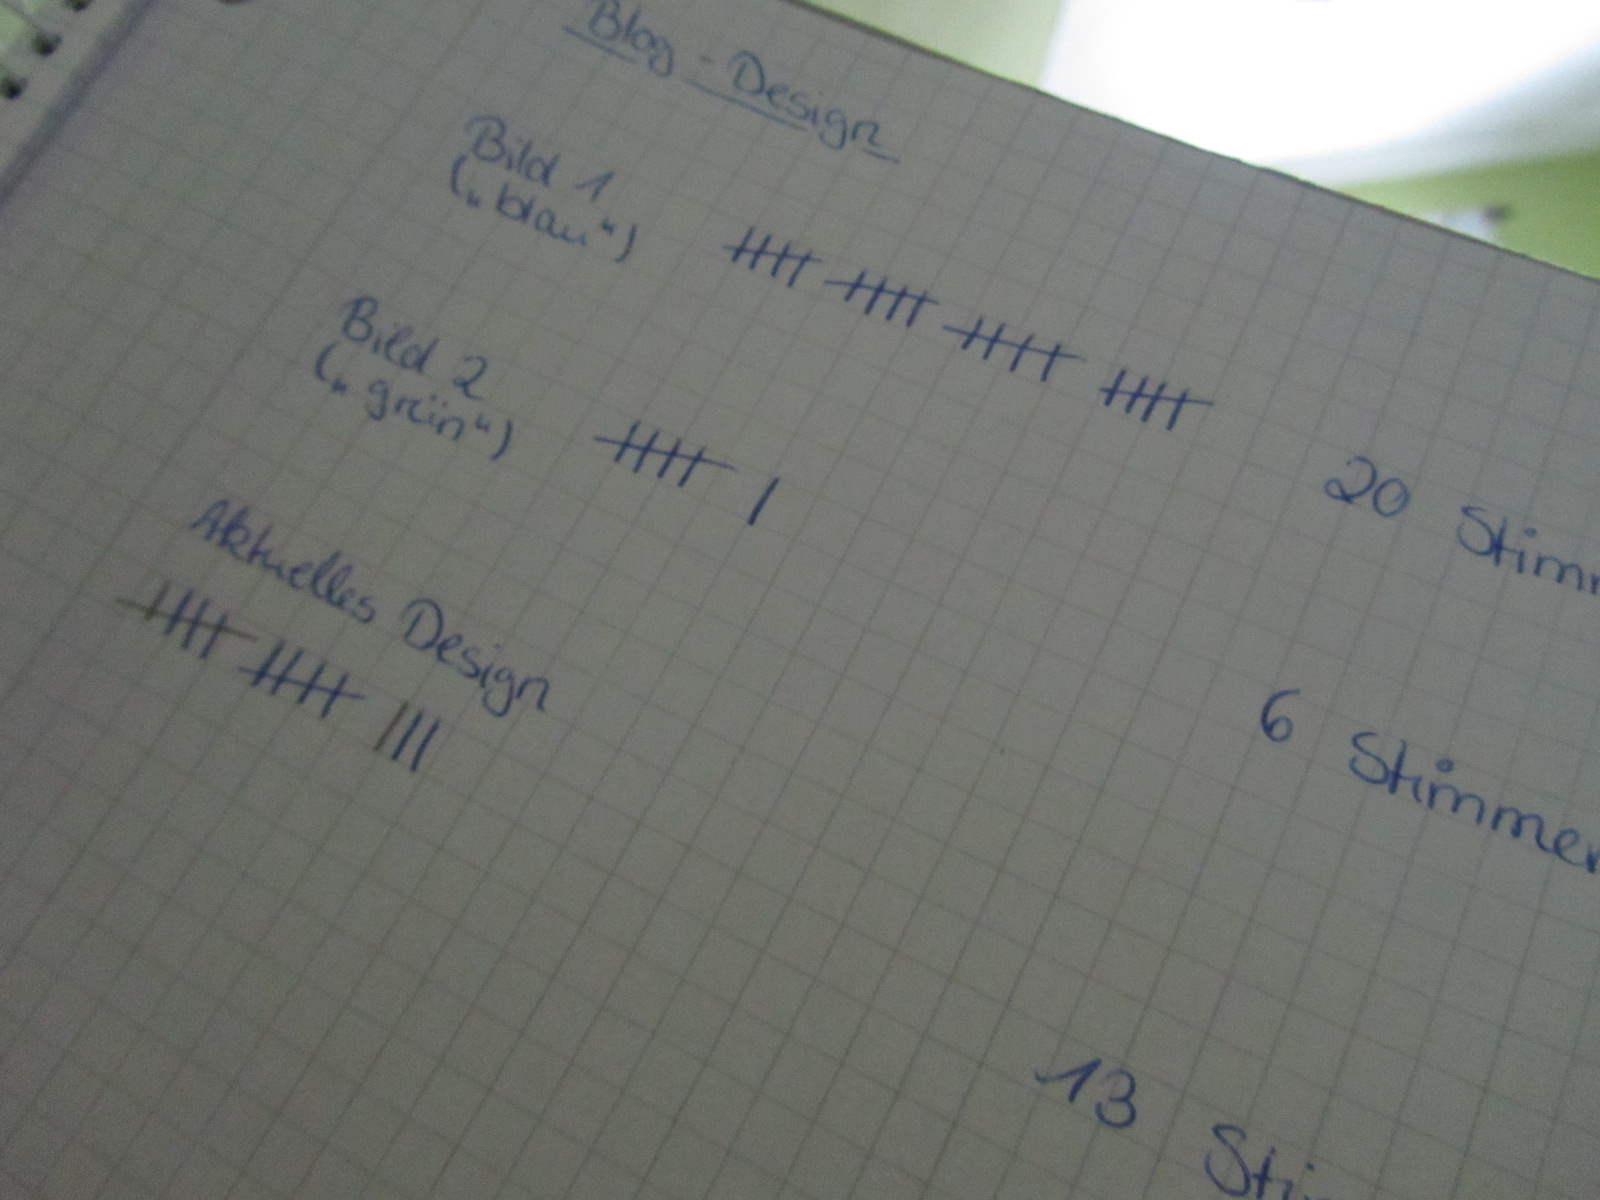 Blog - Design
Bild 1
(„blau“)
20 Stimm
Bild 2
(„grün“)
6 Stimmen
Aktuelles Design
13 Sti